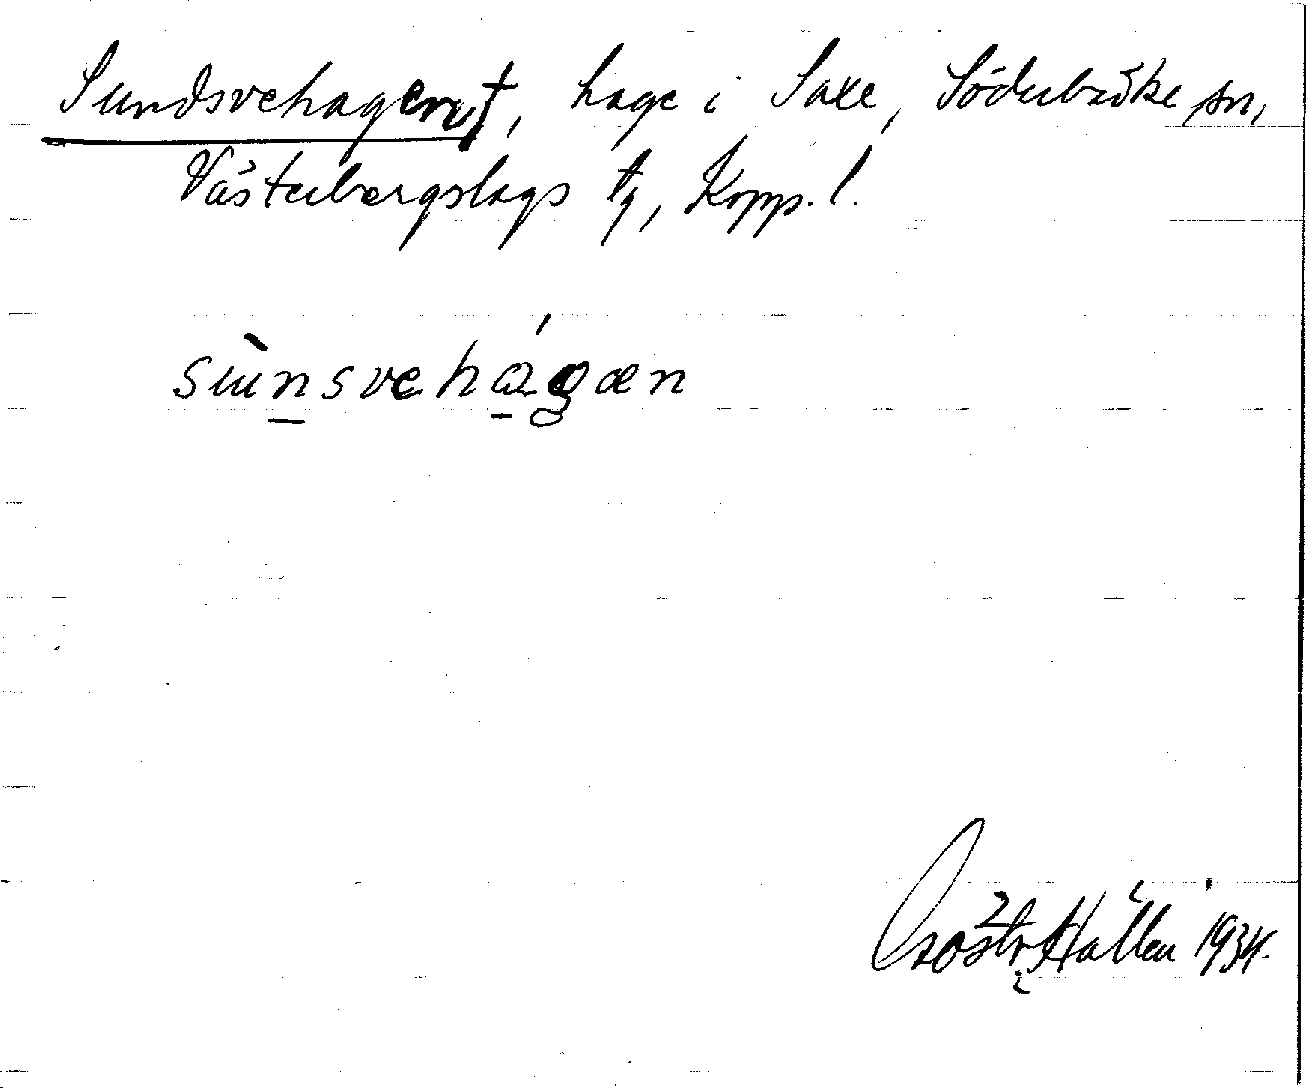 Sundsvehagen†, hage i Saxe, Söderbärke sn,
Västerbergslags tg, Kopp. l.
sùnsvehágæn
Hållen 1934.